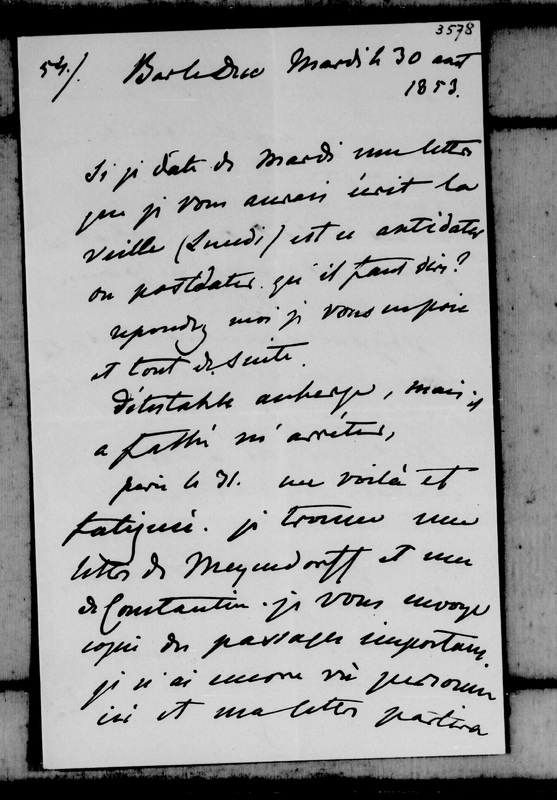 3578
54./ Bar le Duc Mardi le 30 août
1853.
Si je date de Mardi une lettre
que je vous aurais écrit la
veille (Lundi) est ce antidater
ou postdater qu'il faut dire?
repondez moi je vous en prie
et tout de suite.
Détestable auberge, mais il
a fallu m'arrêter,
Paris le 31. me voilà et
fatiguée. je trouve une
lettre de Meyendorff et une
de Constantin. je vous envoye
copie des passages important.
je n'ai encore vu personne
ici et ma lettre partira